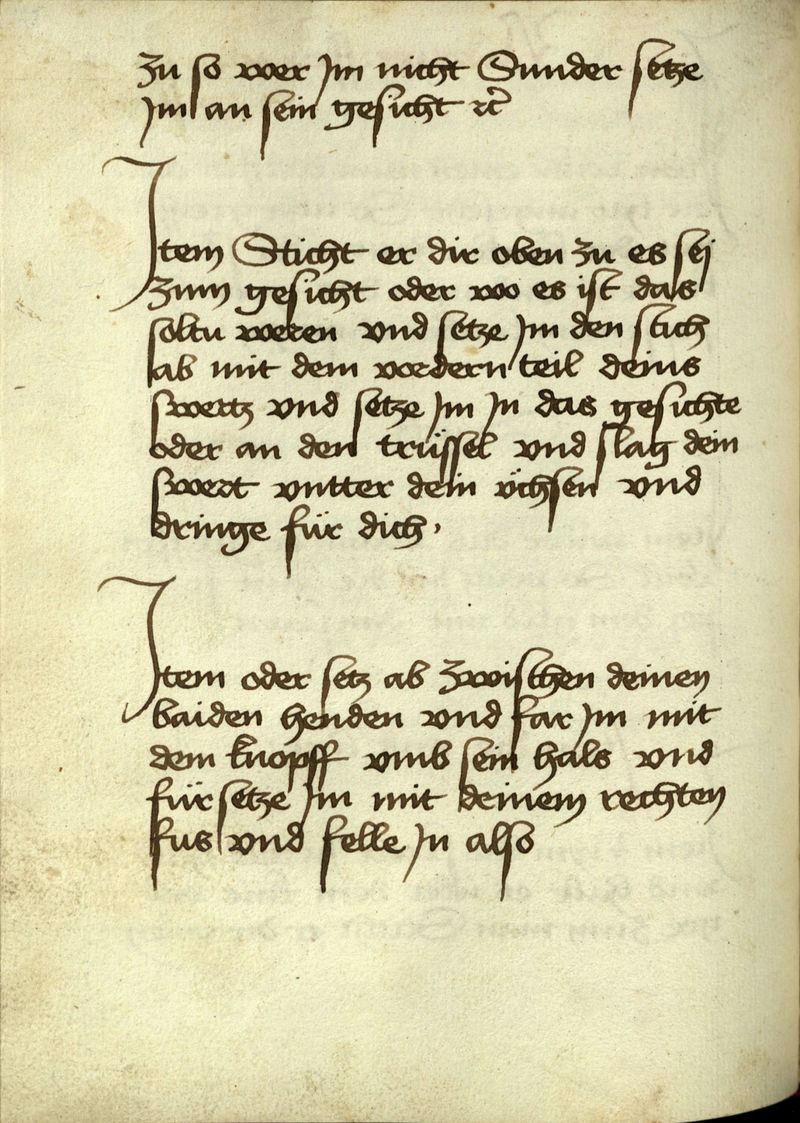 zu so wer Jm nicht Sunder setze
Jm an sein gesicht etc̃
Jtem Sticht er dir oben zu es sej
zum gesicht oder wo es ist das
soltu weren vnd setze Jm den stich
ab mit dem vordern teil deins
swertz vnd setze Jm Jn das gesichte
oder an den trüssel vnd slag dein
swert vntter dein vchsen vnd
dringe für dich,
Jtem oder setz ab zwischen deinen
baiden henden vnd far Jm mit
dem knopff vmb sein hals vnd
fürsetze Jm mit deinem rechten
fus vnd felle Jn also